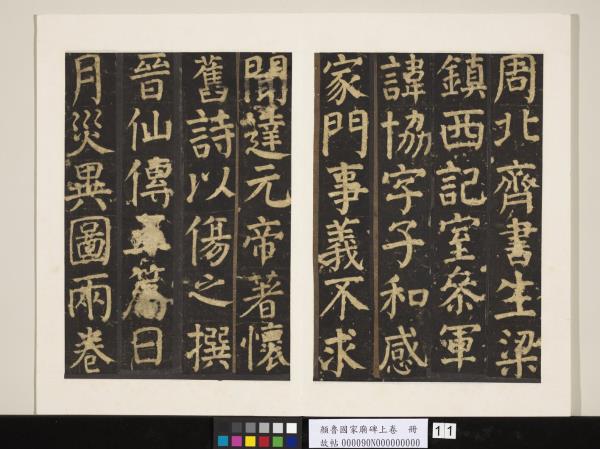 周北齊書生梁
鎮西記室叅軍
諱協字子和感
家門事義不求
聞達元帝著懷
舊詩以傷之撰
晉仙傳五篇日
月災異圖兩卷
顏魯國家廟碑上卷　冊
故帖000090N000000000
11